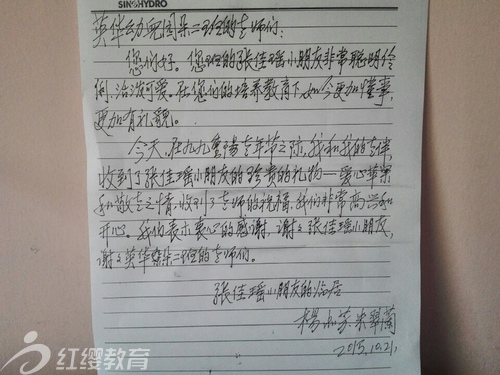 SINOHYDRO
英华幼儿园朵二班的老师们:
您们好。您班的张佳瑶小朋友非常聪明伶
俐,活泼可爱。在您们的培养教育下,如今更加懂事,
更加有礼貌。
今天,在九九重阳老年节之际,我和我的老伴
收到了张佳瑶小朋友的珍贵的礼物—爱心苹果
和敬老之情,收到了老师的祝福,我们非常高兴和
开心。我们表示衷心的感谢,谢谢张佳瑶小朋友,
谢谢英华朵二班的老师们。
张佳瑶小朋友的邻居
杨 米翠兰
2015.10.21.
红缨教育